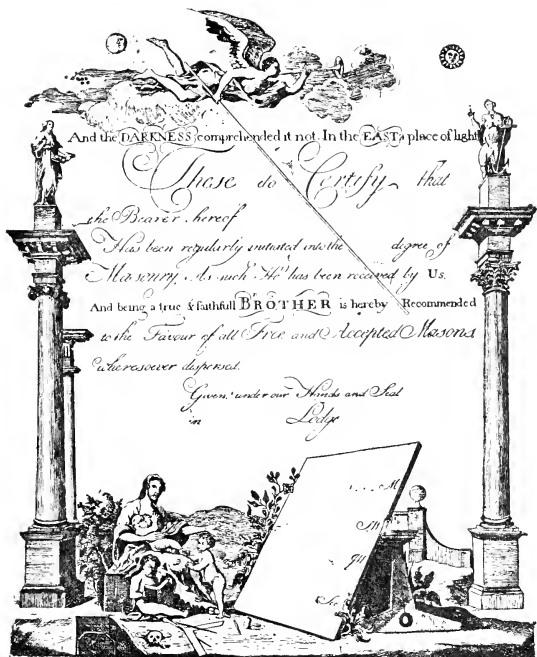 And the DARKNESS comprehended it not. In the EAST a place of light
These do Certify that
the Bearer hereof
Has been regularly initiated into the degree of
Masonry. As such He has been received by Us.
And being a true & faithfull BROTHER is hereby Recommended
to the Favour of all Free and Accepted Masons
wheresoever dispersed.
Given under our Hands and Seal
in Lodge
M
SW
JW
Sec